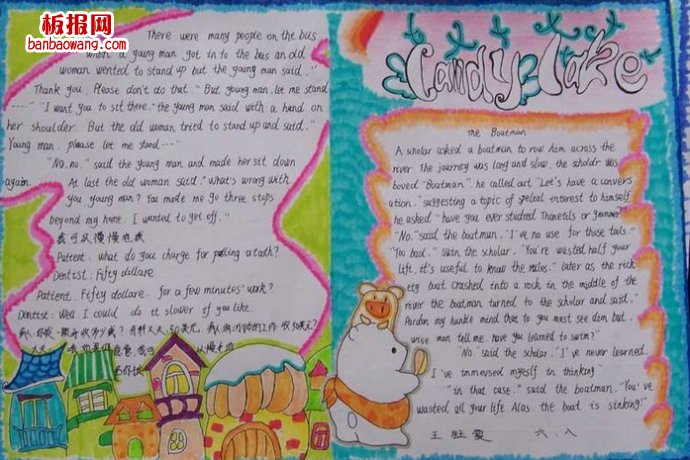 板报网
banbaowang.com
There were many people on the bus
when a young man got in to the bus an old
woman wented to stand up but the young man said."
Thank you. Please don't do that." But young man. let me stand
----" "I want you to sit there." the young man said with a hand on
her shoulder. But the old woman tried to stand up and said."
Young man. please let me stand---"
"No. no." said the young man and made her sit down
again. At last the old woman said. "What's wrong with
you young man? You made me go three stops
beyond my home. I wanted to get off."
我可以慢慢
Patient: what do you charge for pulling a tooth?
Dentist: Fifty dollare
Patient: Fifty dollare. for a few minutes' work?
Dentist: Well. I could do it slower if you like.
Candy lake
The Boatman
A scholar asked a boatman to row him across the
river The journey was long and slow. the scholar was
boved "Boatman". he called out "Let's have a convers
ution." suggesting a topic of interest to himself
he asked "have you ever studied or grammer?"
"No." said the boatman. "I've no use for those tools."
"Too bad." the scholar. "You're wasted half your
life. it's useful to know the rules." later as the rick
ety boat crashed into a rock in the middle of the
river the boatman turned to the scholar and said."
Pardon my humble mind that to you must see dim but.
wise man tell me. have you learned to swim?"
"No." said the scholar. "I've never learned.
I've immersed myself in thinking"
"in that case." said the boatman. "You've
wasted all your life Alas the boat is sinking!"
王 雯 六.八